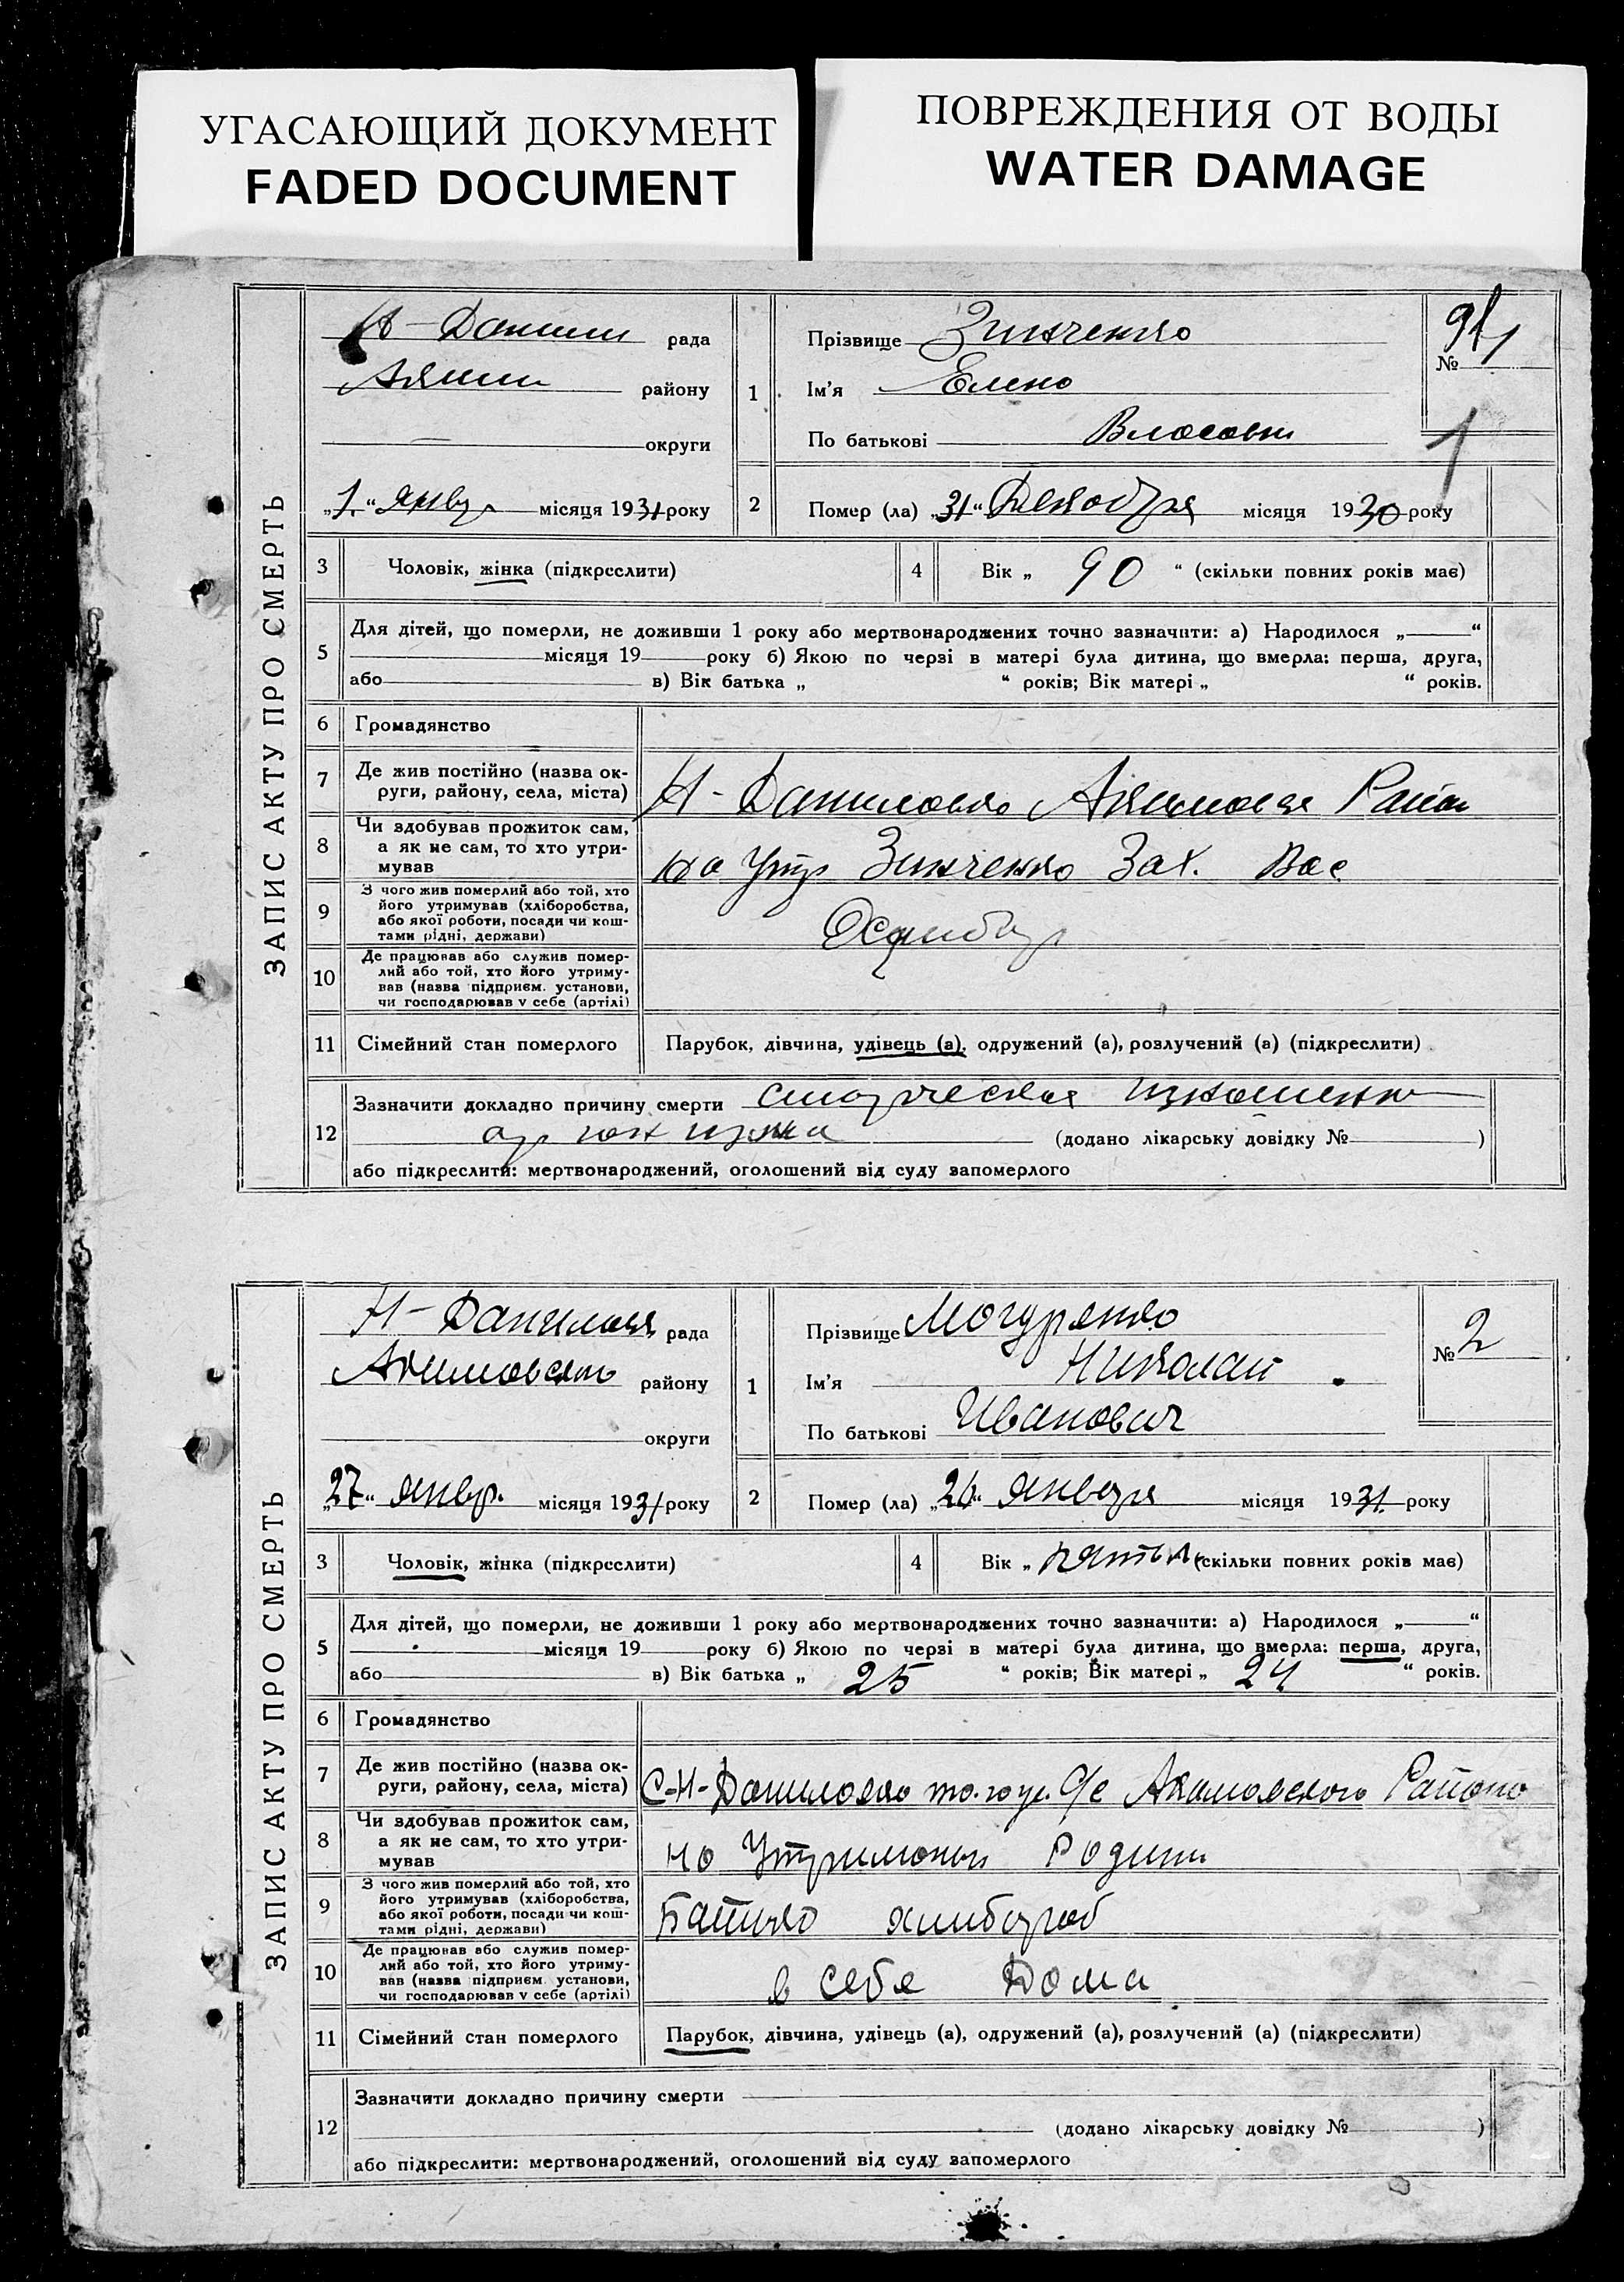 УГАСАЮЩИЙ ДОКУМЕНТ
FADED DOCUMENT
ПОВРЕЖДЕНИЯ ОТ ВОДЫ
WATER DAMAGE
ЗАПИС АКТУ ПРО СМЕРТЬ
рада
району
округи
„1“ янвр місяця 1931 року
1
Прізвище Зинченко
Ім'я Елено
По батькові Власовн
№
1
2 Помер (ла) „31“ Декабря місяця 1930 року
3 Чоловік, жінка (підкреслити)
4 Вік „ 90 “ (скільки повних років має)
5 Для дітей, що померли, не доживши 1 року або мертвонароджених точно зазначити: а) Народилося „ “
місяця 19 року б) Якою по черзі в матері була дитина, що вмерла: перша, друга,
або в) Вік батька „ “ років; Вік матері „ “ років.
6 Громадянство
7 Де жив постійно (назва ок-
руги, району, села, міста)
Н-Даниловко Район
8 Чи здобував прожиток сам,
а як не сам, то хто утри-
мував
Зинченко Зах. Вас
9 З чого жив померлий або той, хто
його утримував (хліборобства,
або якої роботи, посади чи кош-
тами рідні, держави)
10 Де працював або служив помер-
лий або той, хто його утриму-
вав (назва підприєм. установи,
чи господарював у себе (артілі)
11 Сімейний стан померлого
Парубок, дівчина, удівець (а), одружений (а), розлучений (а) (підкреслити)
12 Зазначити докладно причину смерти
(додано лікарську довідку № )
або підкреслити: мертвонароджений, оголошений від суду запомерлого
ЗАПИС АКТУ ПРО СМЕРТЬ
рада
району
округи
„27“ янвр. місяця 1931 року
1
Прізвище Могуренко
Ім'я Николай
По батькові Иванович
№ 2
2 Помер (ла) „26“ января місяця 1931 року
3 Чоловік, жінка (підкреслити)
4 Вік „ (скільки повних років має)
5 Для дітей, що померли, не доживши 1 року або мертвонароджених точно зазначити: а) Народилося „ “
місяця 19 року б) Якою по черзі в матері була дитина, що вмерла: перша, друга,
або в) Вік батька „ 25 “ років; Вік матері „ 24 “ років.
6 Громадянство
7 Де жив постійно (назва ок-
руги, району, села, міста)
С-Н-Даниловко с/с Акимовского Району
8 Чи здобував прожиток сам,
а як не сам, то хто утри-
мував
но Утримоньи Родини
9 З чого жив померлий або той, хто
його утримував (хліборобства,
або якої роботи, посади чи кош-
тами рідні, держави)
Батько хлибороб
10 Де працював або служив помер-
лий або той, хто його утриму-
вав (назва підприєм. установи,
чи господарював у себе (артілі)
в себе Дома
11 Сімейний стан померлого
Парубок, дівчина, удівець (а), одружений (а), розлучений (а) (підкреслити)
12 Зазначити докладно причину смерти
(додано лікарську довідку № )
або підкреслити: мертвонароджений, оголошений від суду запомерлого